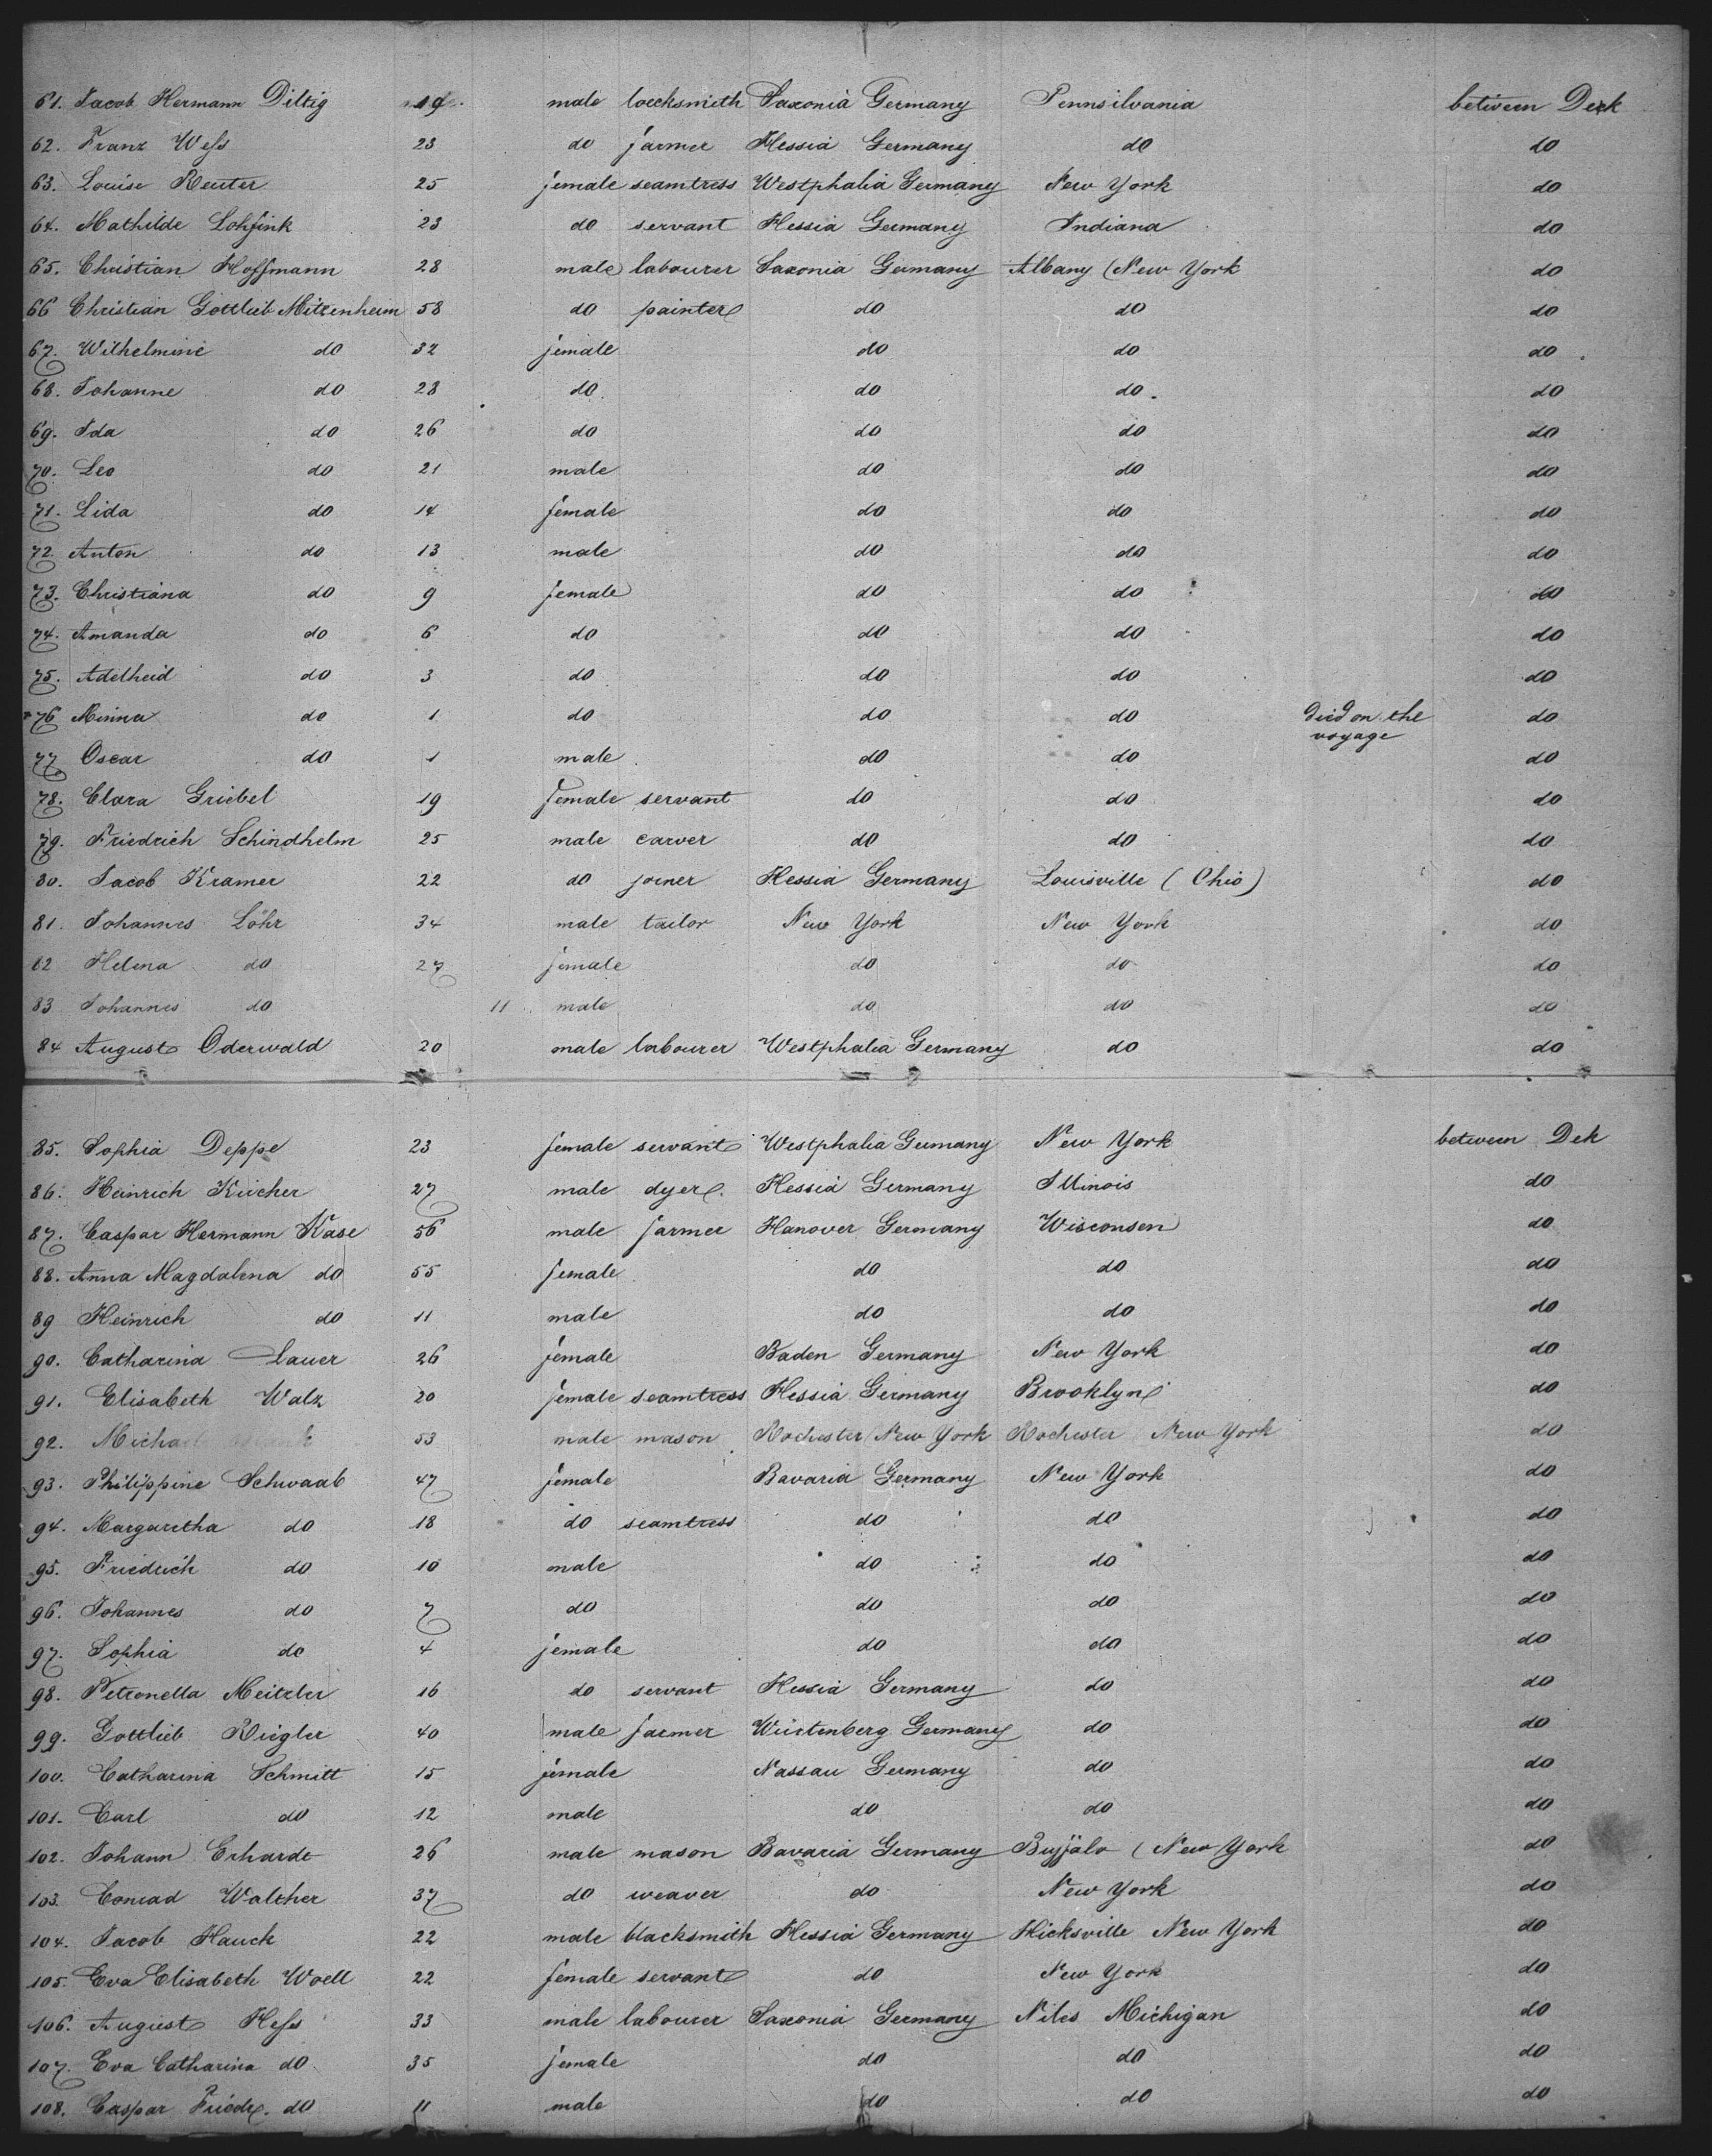 61. Jacob Hermann Diltig 19. male loccksmith Saxonia Germany Pennsilvania between Deck
62. Franz Weſs 23 do farmer Hessia Germany do do
63. Louise Reuter 25 female seamtress Westphalia Germany New York do
64. Mathilde Lohfink 23 do servant Hessia Germany Indiana do
65. Christian Hoffmann 28 male labourer Saxonia Germany Albany (New York do
66 Christian Gottlieb Mittenheim 58 do painter do do do
67. Wilhelmine do 32 female do do do
68. Johanne do 28 do. do do. do
69. Ida do 26 do do do do
70. Leo do 21 male do do do
71. Lida do 14 female do do do
72. Anton do 13 male do do do
73. Christiana do 9 female do do do
74. Amanda do 6 do do do do
75. Adelheid do 3 do do do do
76 Minna do 1 do do do died on the voyage do
77 Oscar do 1 male do do do
78. Clara Griebel 19 female servant do do do
79. Friedrich Schindhelm 25 male carver do do do
80. Jacob Kramer 22 do joiner Hessia Germany Louisville (Ohio) do
81. Johannes Löhr 34 male tailor New York New York do
82 Helena do 27 female do do do
83 Johannes do 11 male do do do
84 August Oderwald 20 male labourer Westphalia Germany do do
85. Sophia Deppe 23 female servant Westphalia Germany New York between Dek
86. Heinrich Kircher 27 male dyer. Hessia Germany Illinois do
87. Caspar Hermann Kase 56 male farmer Hanover Germany Wisconsen do
88. Anna Magdalena do 55 female do do do
89 Heinrich do 11 male do do do
90. Catharina Lauer 26 female Baden Germany New York do
91. Elisabeth Walz 20 female seamtress Hessia Germany Brooklyn do
92. Michael 53 male mason Rochester (New York Rochester (New York do
93. Philippine Schwaab 47 female Bavaria Germany New York do
94. Margaretha do 18 do seamtress do do do
95. Friedrich do 10 male do do do
96. Johannes do 7 do do do do
97. Sophia do 4 female do do do
98. Petronella Meitzler 16 do servant Hessia Germany do do
99. Gottlieb Riegler 40 male farmer Würtenberg Germany do do
100. Catharina Schmitt 15 female Nassau Germany do do
101. Carl do 12 male do do do
102. Johann Erhardt 26 male mason Bavaria Germany Buffalo (New York do
103. Conrad Walther 37 do weaver do New York do
104. Jacob Hauck 22 male blacksmith Hessia Germany Hicksville New York do
105. Eva Elisabeth Woell 22 female servant do New York do
106. August Heſs 33 male labourer Saxonia Germany Niles Michigan do
107. Eva Catharina do 35 female do do do
108. Caspar Friedr. do 11 male do do do